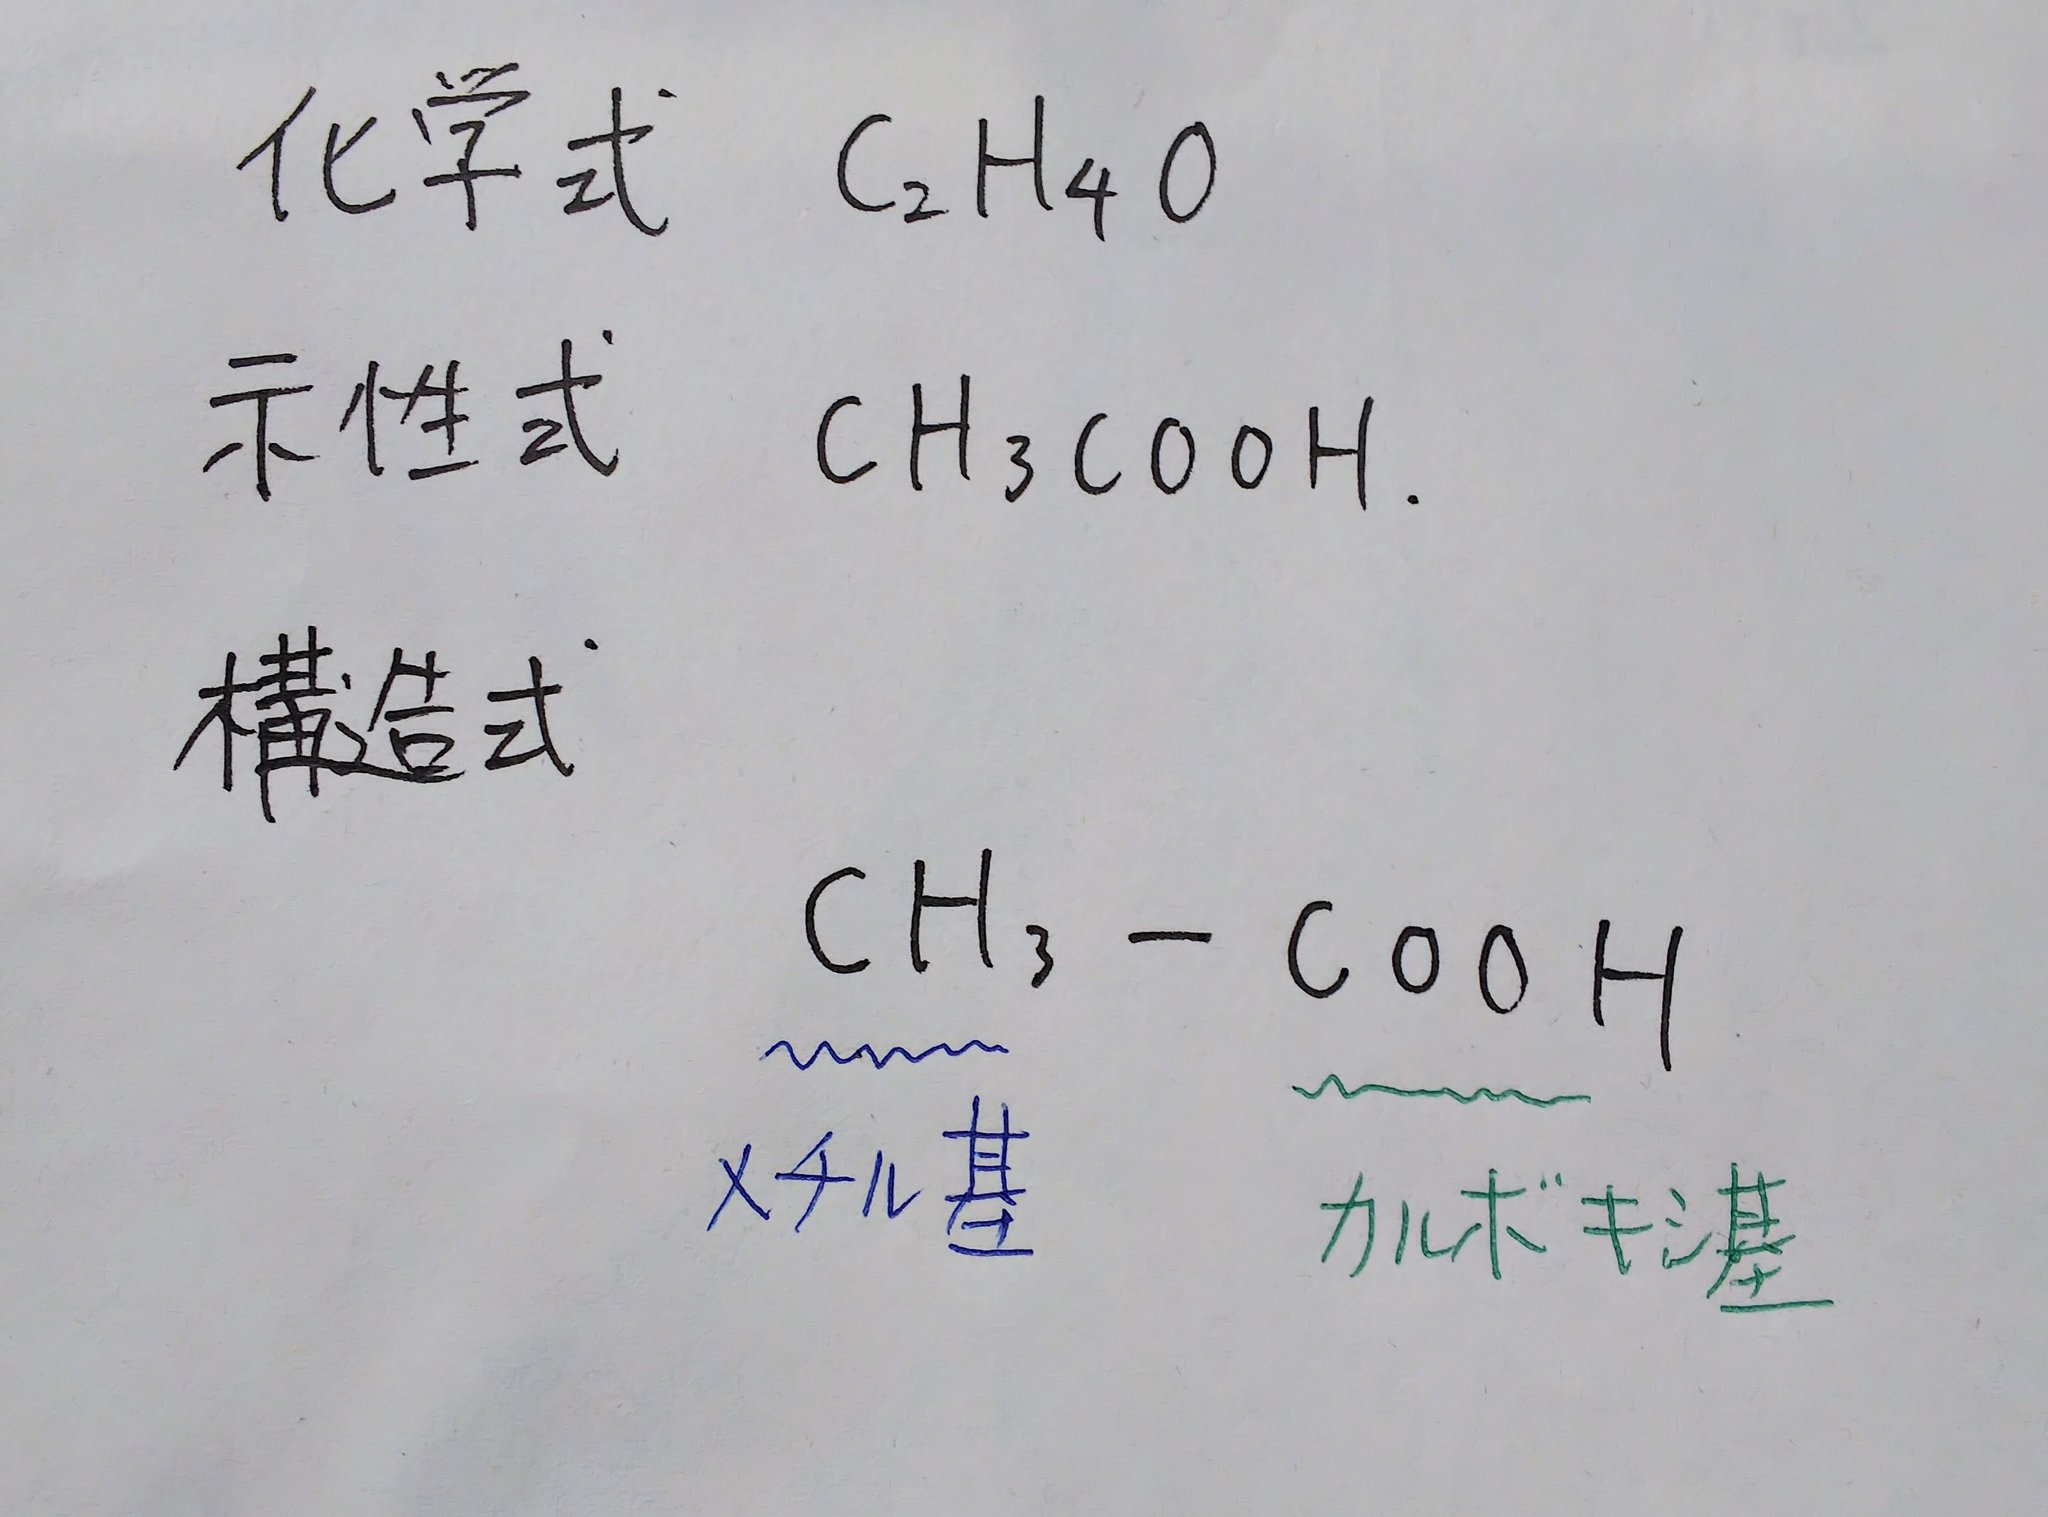 化学式 C₂H₄O
示性式 CH₃COOH.
構造式
CH₃-COOH
メチル基 カルボキシ基